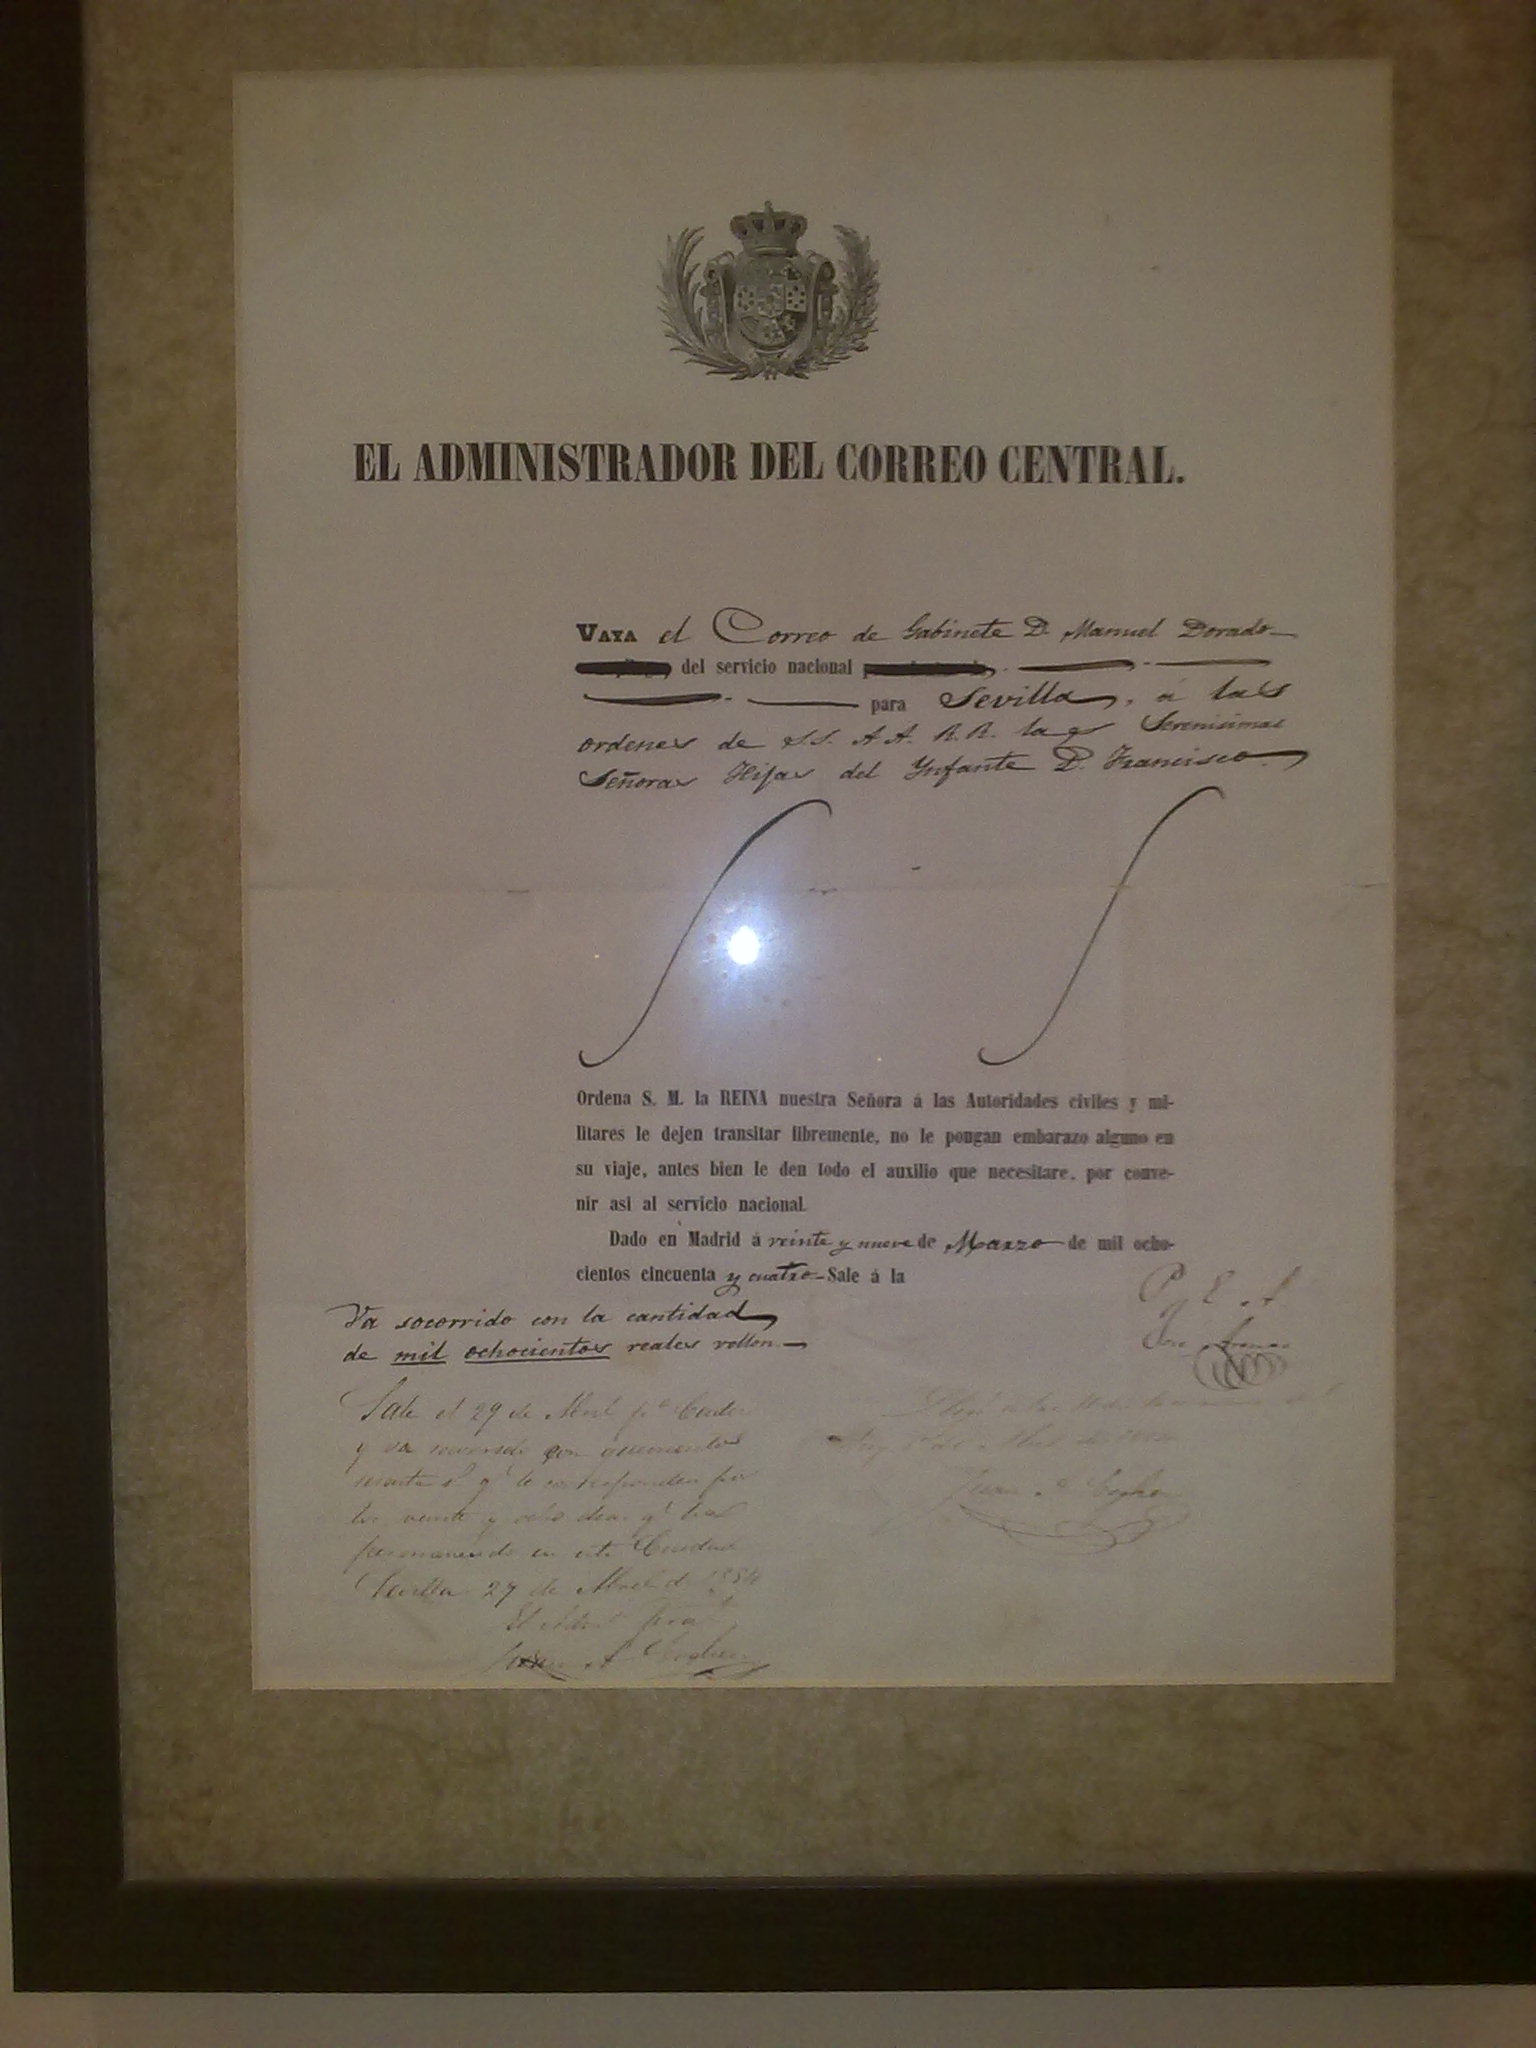 EL ADMINISTRADOR DEL CORREO CENTRAL.
VAYA el Correo de Gabinete D. Manuel Dorado
del servicio nacional
para Sevilla, á las
ordenes de SS. AA. RR. las Serenisimas
Señoras Hijas del Ynfante D. Francisco.
Ordena S. M. la REINA nuestra Señora á las Autoridades civiles y mi-
litares le dejen transitar libremente, no le pongan embarazo alguno en
su viaje, antes bien le den todo el auxilio que necesitare, por conve-
nir asi al servicio nacional.
Dado en Madrid á veinte y nueve de Marzo de mil ocho-
cientos cincuenta y cuatro Sale á la
Va socorrido con la cantidad
de mil ochocientos reales vellon
Sale el 29 de Abril
y va socorrido con quinientos
sesenta r.s q.e le corresponden por
los veinte y ocho dias q.e ha
permanecido en esta Ciudad
Sevilla 29 de Abril de 1854
El Adm.or
Juan